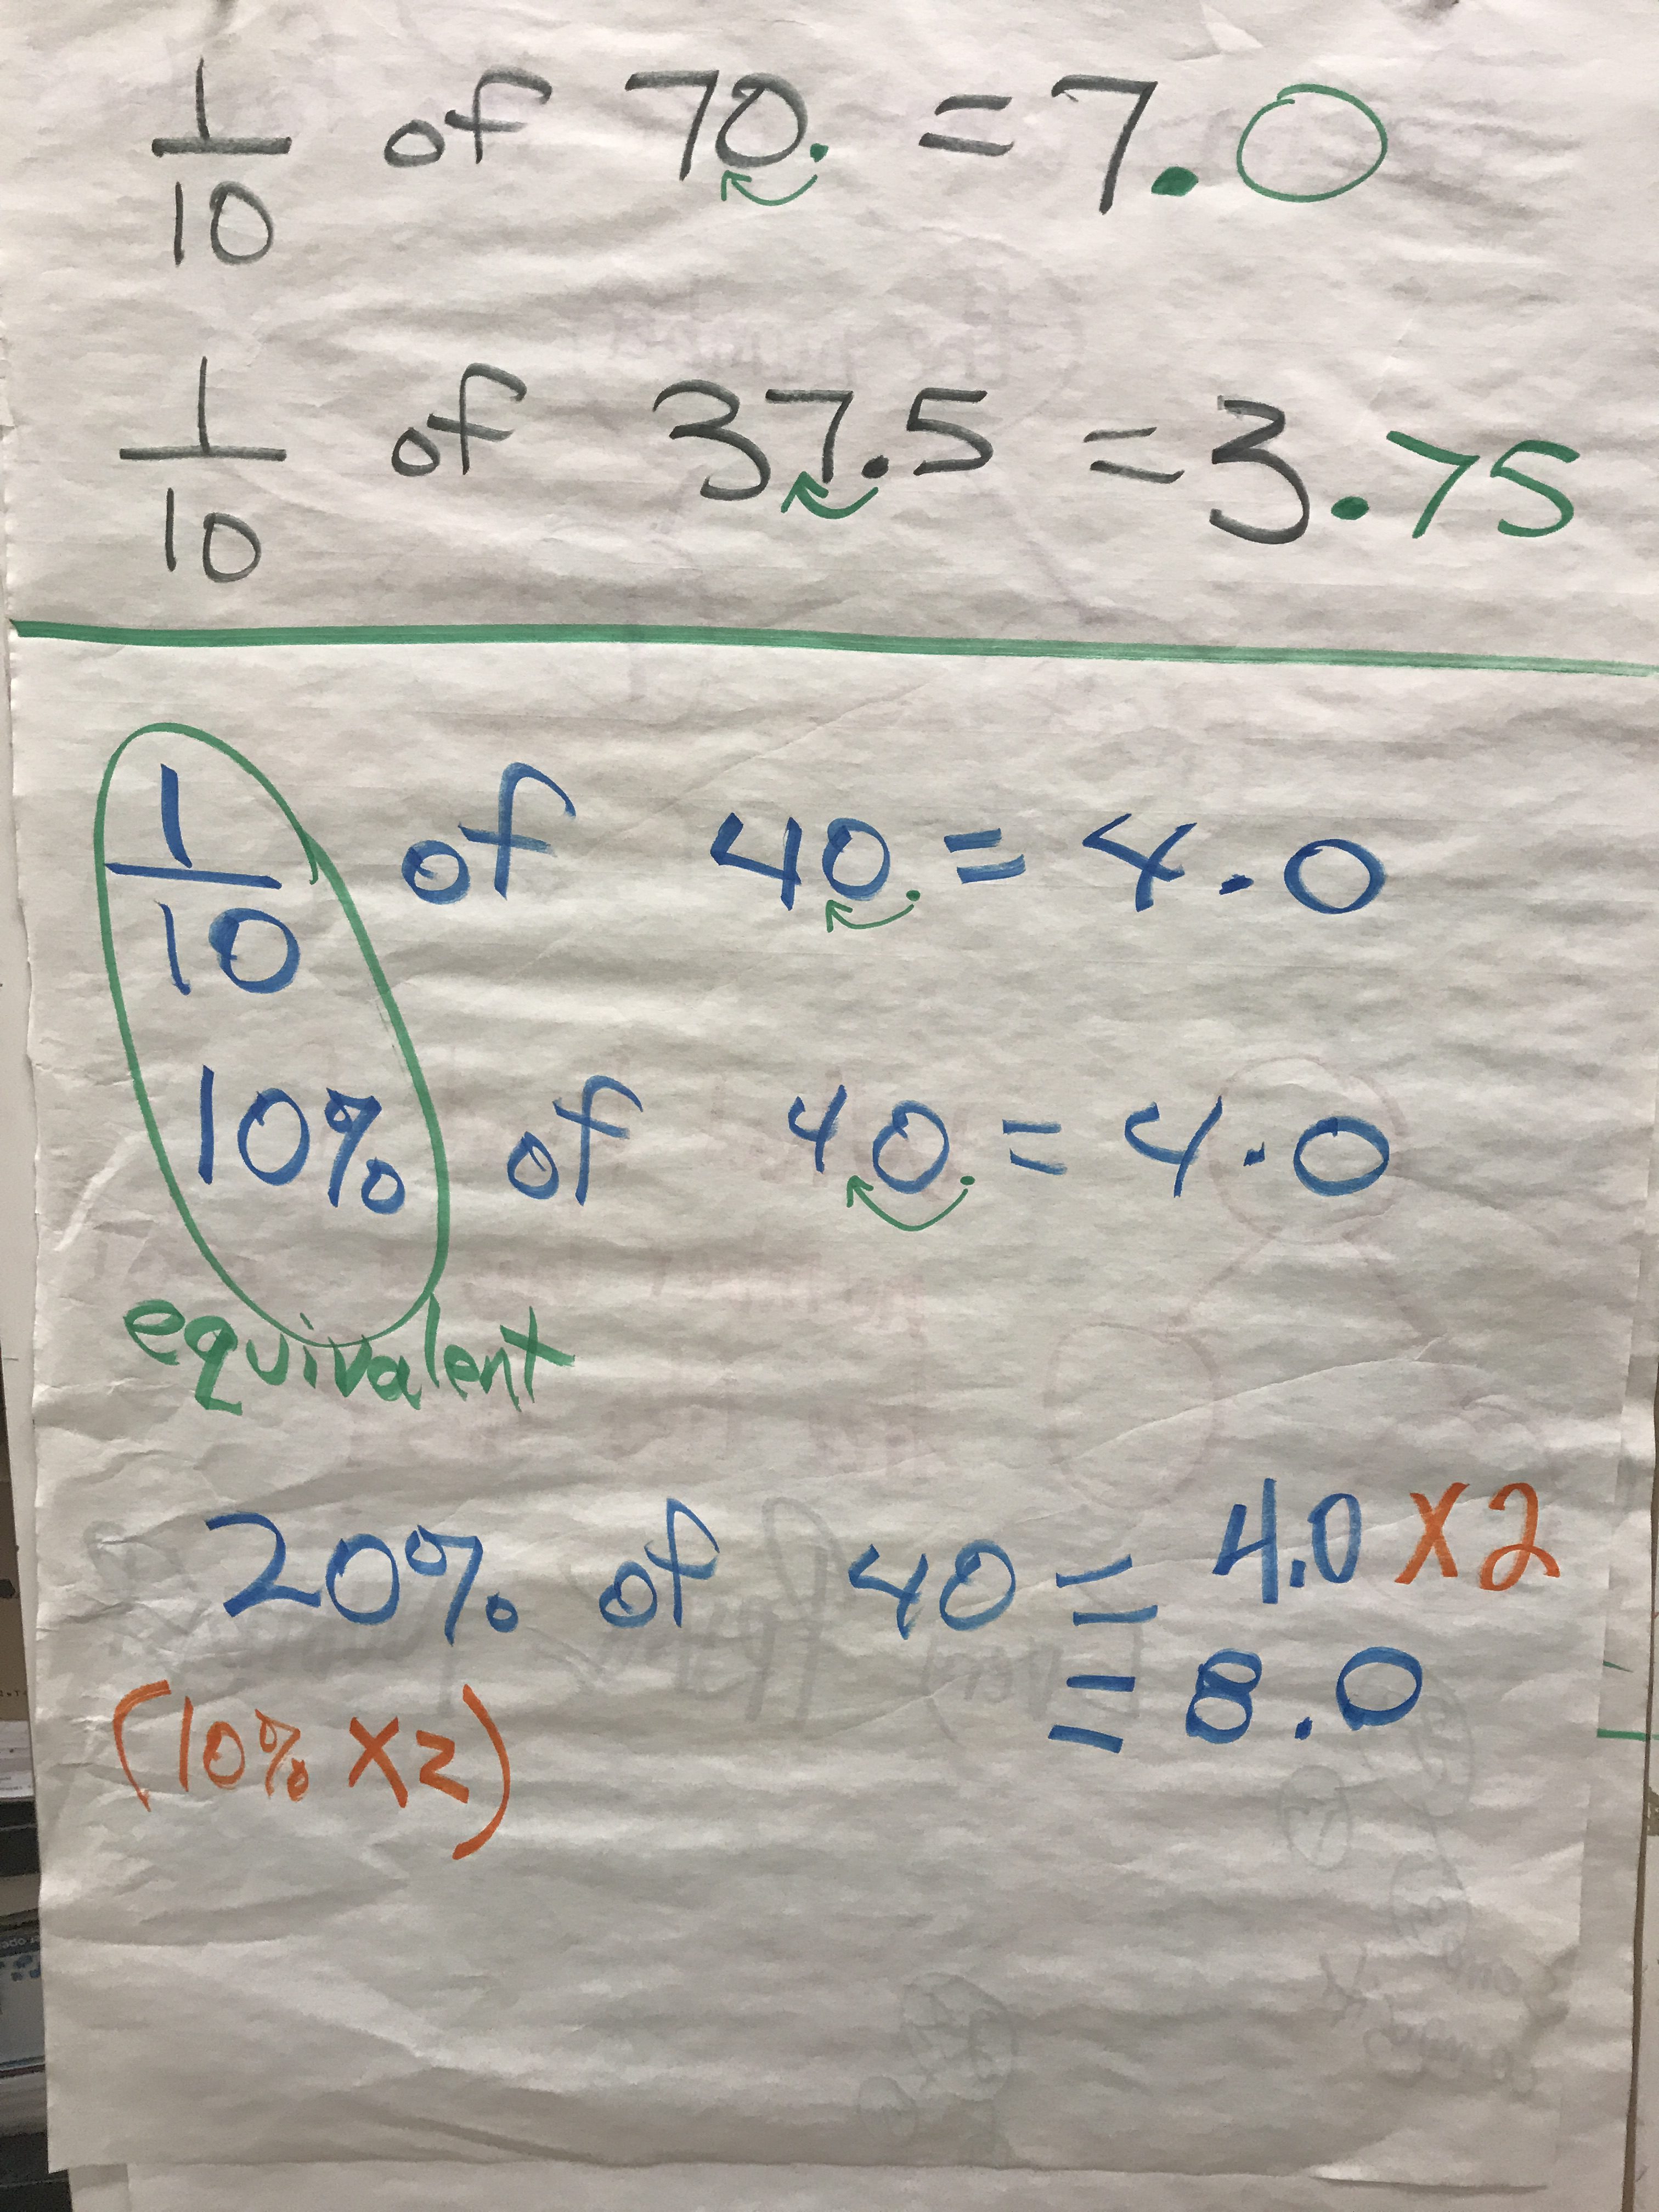 1/10 of 70. = 7.0
1/10 of 37.5 = 3.75
1/10 of 40. = 4.0
10% of 40. = 4.0
equivalent
20% of 40 = 4.0 X2
= 8.0
(10% X2)